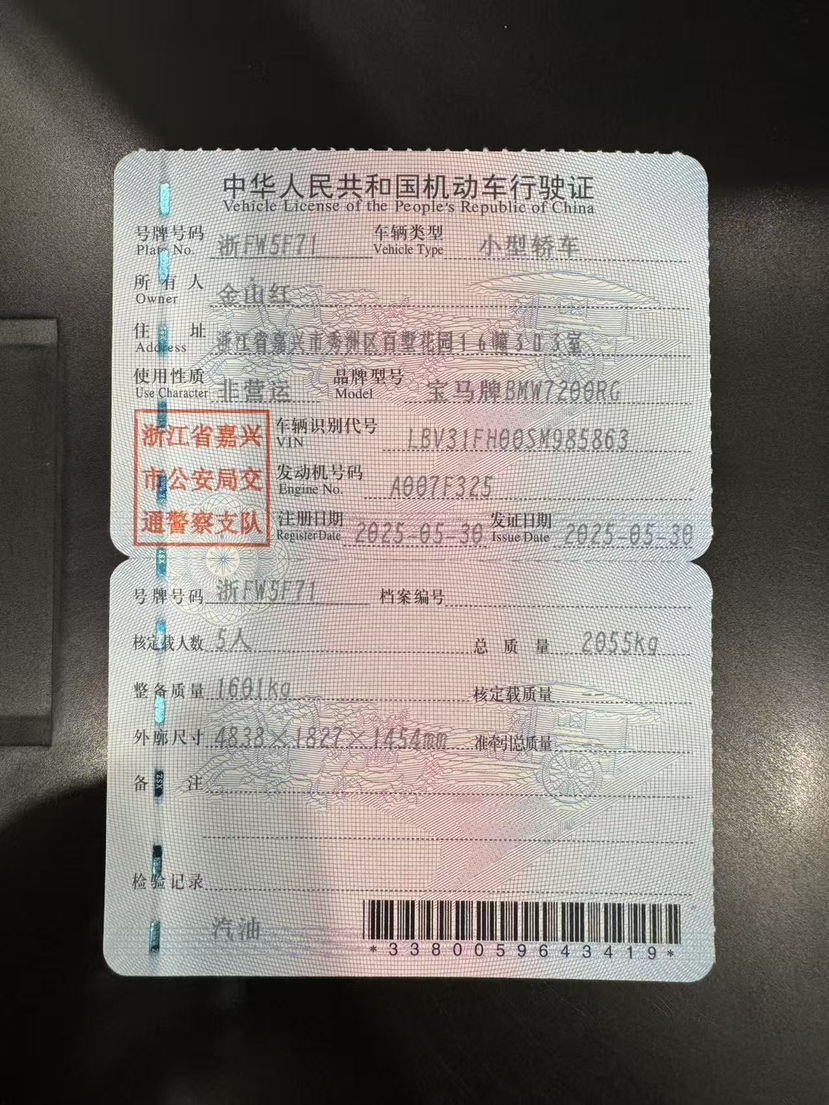 中华人民共和国机动车行驶证
Vehicle License of the People's Republic of China
号牌号码 浙FW5F71 车辆类型 小型轿车
Plate No. Vehicle Type
所有人 金山红
Owner
住址 浙江省嘉兴市秀洲区百墅花园16幢303室
Address
使用性质 非营运 品牌型号 宝马牌BMW7200RG
Use Character Model
浙江省嘉兴 车辆识别代号 LBV31FH00SM985863
VIN
市公安局交 发动机号码 A007F325
Engine No.
通警察支队 注册日期 2025-05-30 发证日期 2025-05-30
Register Date Issue Date
号牌号码 浙FW5F71 档案编号
核定载人数 5人 总质量 2055kg
整备质量 1601kg 核定载质量 --
外廓尺寸 4838×1827×1454mm 准牵引总质量 --
备注
检验记录
汽油
*3380059643419*